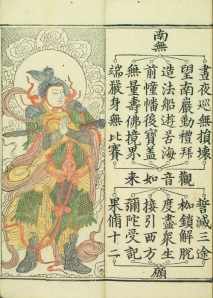 南無
晝夜巡無損壞
望南巖勤禮拜
造法船遊苦海
前幢幡後寶蓋
無量壽佛境界
端嚴身無比賽
觀音如來
誓滅三途
枷鎖解脫
度盡眾生
接引西方
彌陀受記
果脩十二
願